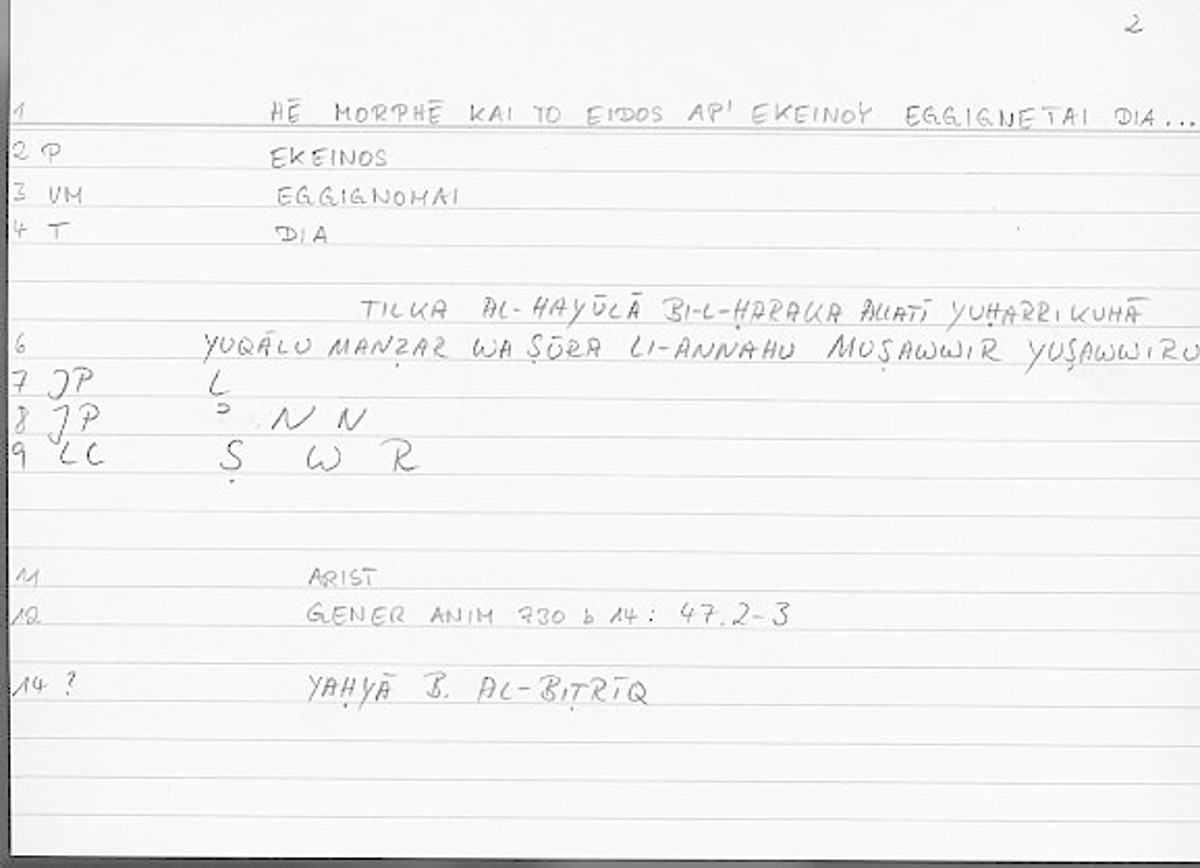 2
1 HĒ MORPHĒ KAI TO EIDOS AP' EKEINOY EGGIGNETAI DIA...
2 P EKEINOS
3 VM EGGIGNOMAI
4 T DIA
TILKA AL-HAYŪLĀ BI-L-ḤARAKA ALLATĪ YUḤARRIKUHĀ
6 YUQĀLU MANẒAR WA ṢŪRA LI-ANNAHU MUṢAWWIR YUṢAWWIRU
7 JP L
8 JP ʾ N N
9 LC Ṣ W R
11 ARIST
12 GENER ANIM 730 b 14: 47.2-3
14 ? YAḤYĀ B. AL-BIṬRĪQ